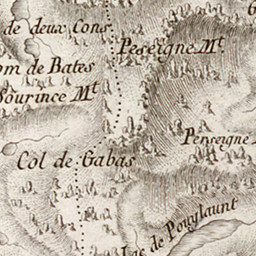 de deux Cons
Peseigne Mt
om de Bates
Sourince Mt
Penseigne
Col de Gabas
Lac de Pouylaunt